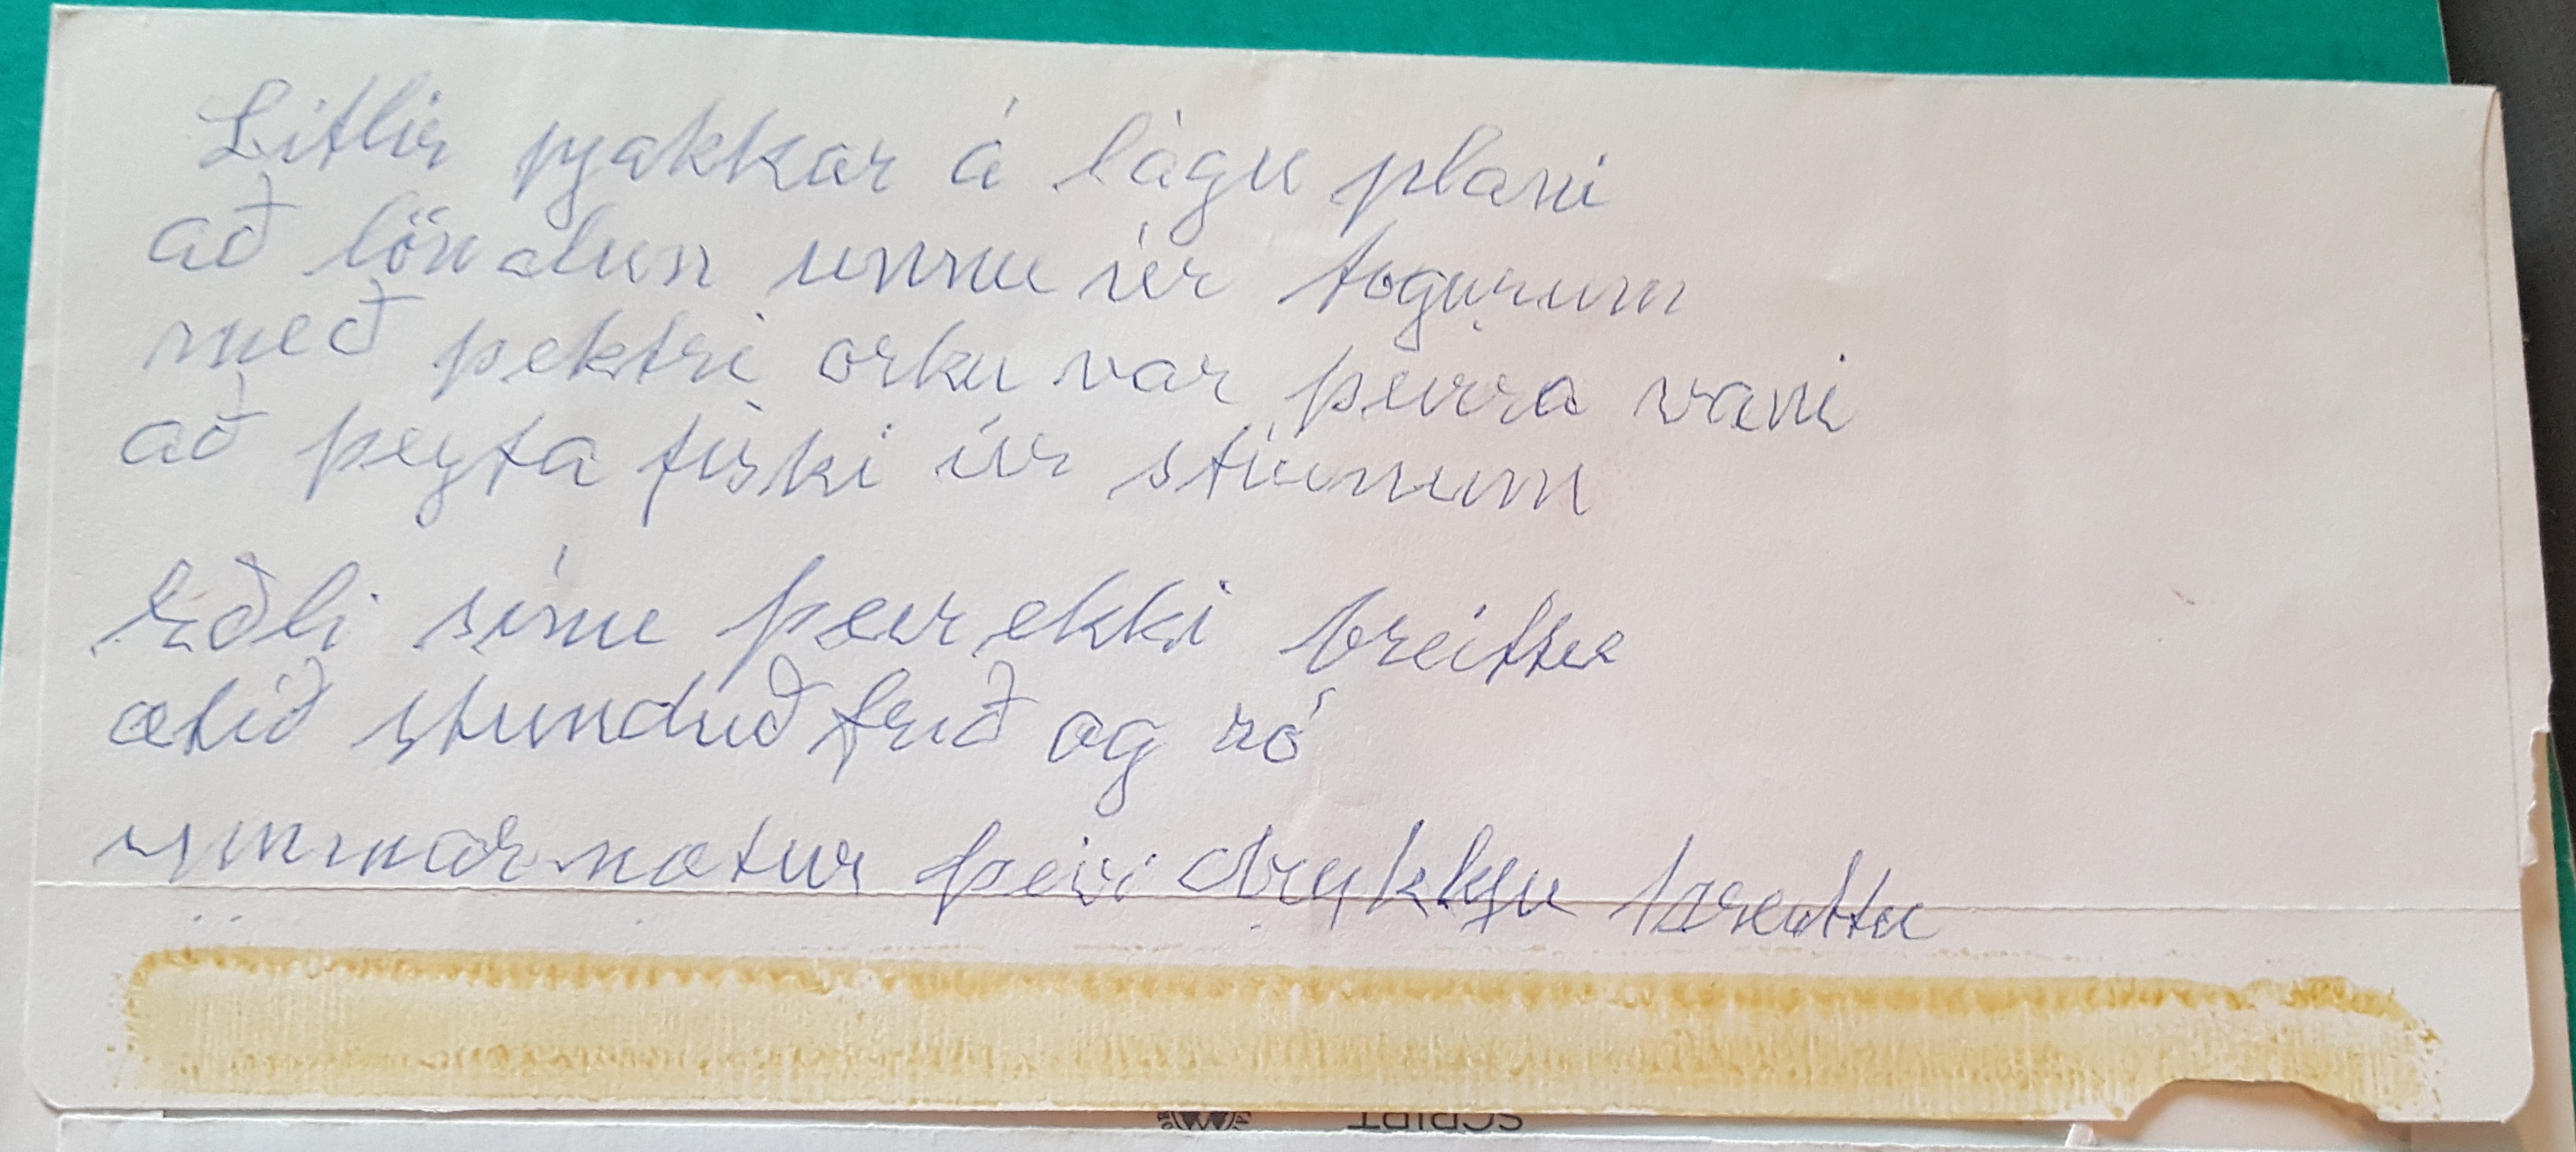 Litlir pjakkar á lágu plani
að löndun unnu úr togurum
með þektri orku var þeirra vani
að þeyta fiski úr stíunum
Eðli sínu þeir ekki breittu
ætið stunduð frið og ró
summar nætur þeir drykkju þreuttu
SCRIPT